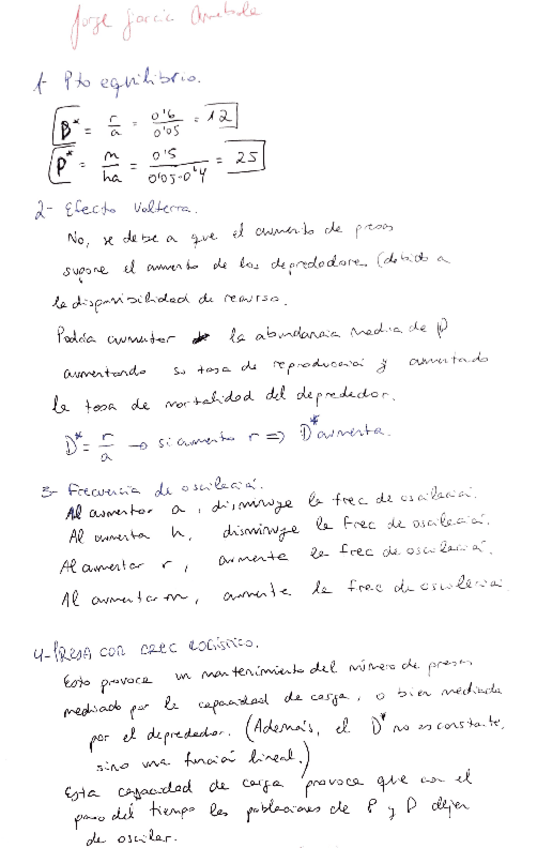 Jorge García
1- Pto equilibrio.
B* = r/a = 0'6/0'05 = 12
P* = m/ha = 0'5/0'05·0'4 = 25
2- Efecto Volterra.
No, se debe a que el aumento de presas
supone el aumento de los depredadores (debido a
la disponibilidad de recurso.
Podría aumentar la abundancia media de P
aumentando su tasa de reproducción y aumentado
la tasa de mortalidad del depredador.
D* = r/a → si aumenta r ⇒ D* aumenta.
3- Frecuencia de oscilación.
Al aumentar a, disminuye la frec de oscilación.
Al aumenta h, disminuye la frec de oscilación.
Al aumentar r, aumenta la frec de oscilación.
Al aumentar m, aumenta la frec de oscilación
4- PRESA CON CREC LOGÍSTICO.
Esto provoca un mantenimiento del número de presas
mediado por la capacidad de carga, o bien mediada
por el depredador. (Además, el D* no es constante,
sino una función lineal.)
Esta capacidad de carga provoca que con el
paso del tiempo las poblaciones de P y D dejen
de oscilar.